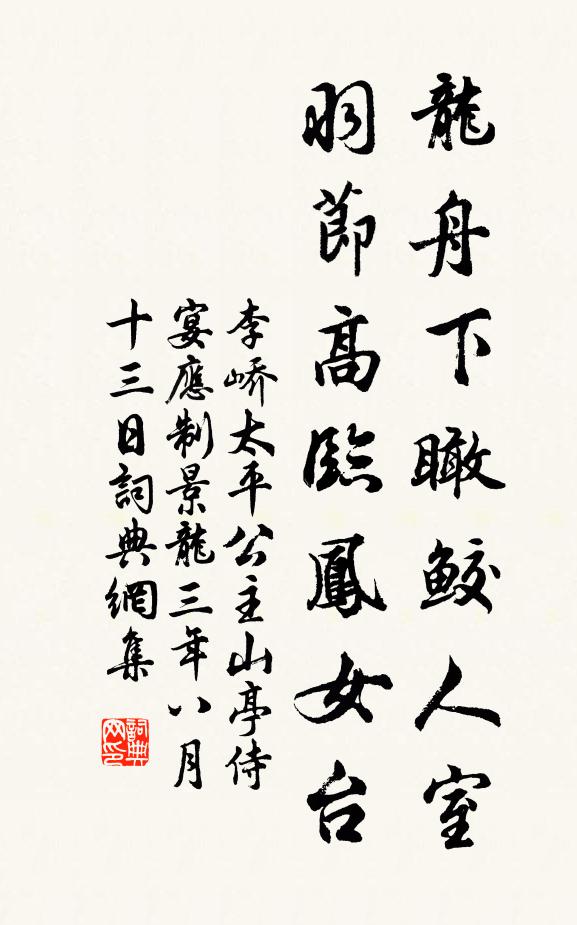 龍舟下瞰鮫人室
羽節高臨鳳女台
李嶠太平公主山亭侍
宴應制景龍三年八月
十三日詞典網集
詞典
网印